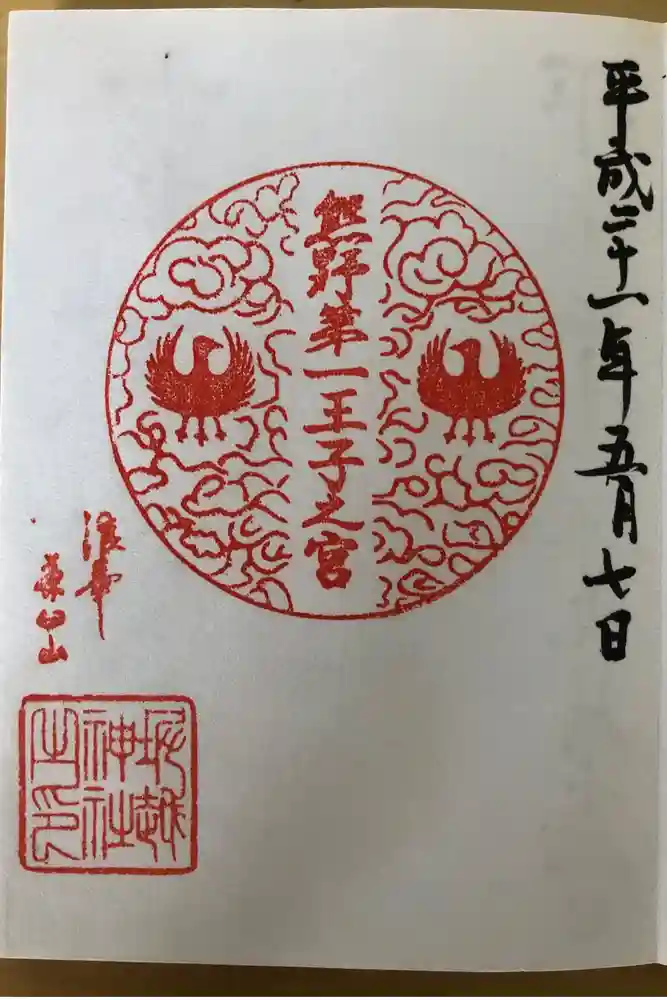 平成二十一年五月七日
熊野第一王子之宮
浪華
茶臼山
堀越
神社
之印